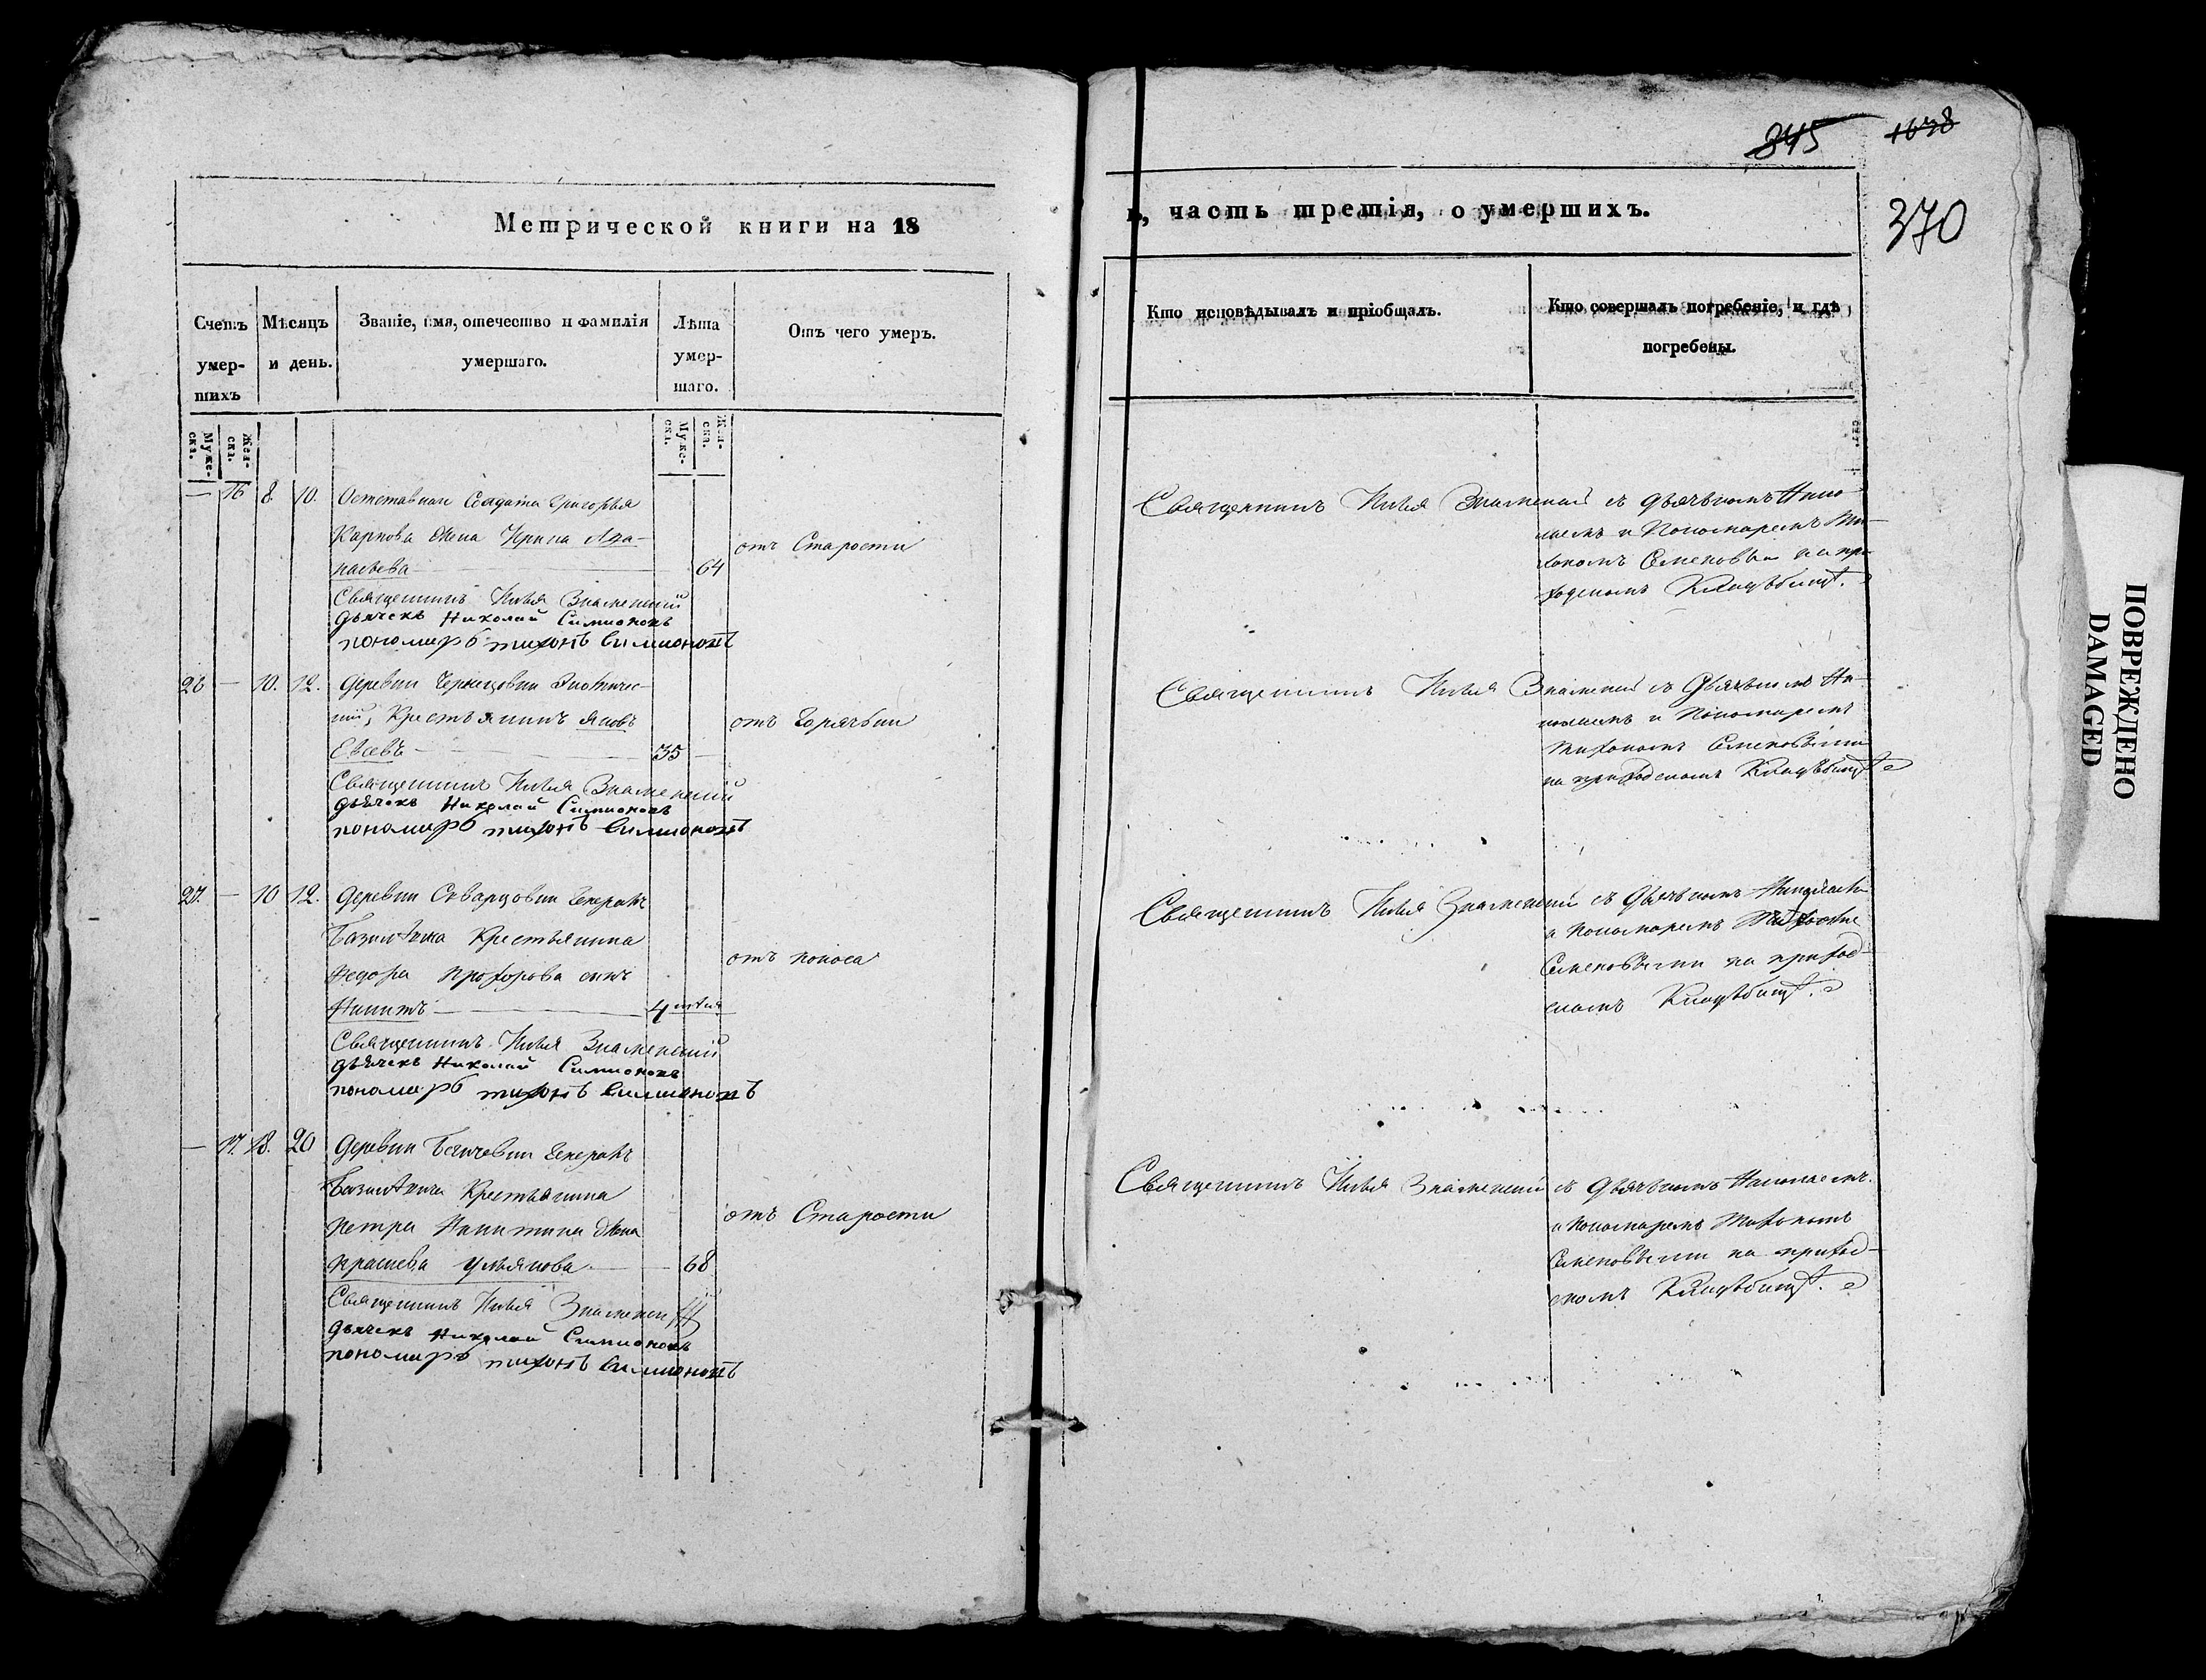 845 1678
370
Метрической книги на 18
ъ, часть третія, о умершихъ.
Счетъ умер-шихъ
Мѣсяцъ и день.
Званіе, имя, отечество и фамилія умершаго.
Лѣта умер-шаго.
Отъ чего умеръ.
Кто исповѣдывалъ и пріобщалъ.
Кто совершалъ погребеніе, и гдѣ погребены.
Муже-ска.
Жен-ска.
Муже-ска.
Жен-ска.
— 16 8. 10.
Солдата Григорья
Карпова жена Ирина Ада-
64
отъ Старости
Священникъ Илья Знаменскій
Дьячекъ Николай Симионовъ
пономарь тихонъ Симионовъ
Священникъ Илья Знаменскій съ дьячкомъ Нико-
лаемъ и Пономаремъ Ти-
хономъ Семеновы на при-
ходскомъ Кладбищѣ.
— 10. 12.
Деревни
Крестьянинъ Яковъ
Евсевъ
35
отъ Горячьки
Священникъ Илья Знаменскій
Дьячекъ Николай Симионовъ
пономарь тихонъ Симионовъ
Священникъ Илья Знаменскій съ Дьячькомъ Ни-
колаемъ и Пономаремъ
Тихономъ Семеновыми
на приходскомъ Кладбищѣ
27. — 10 12.
Деревни Скварцовки Генеральс
Крестьянина
Федора Прохорова сынъ
Никитъ
4
отъ поноса
Священникъ Илья Знаменскій
Дьячекъ Николай Симионовъ
пономарь тихонъ Симионовъ
Священникъ Илья Знаменскій съ Дьячькомъ Николаемъ
и Пономаремъ Тихономъ
Семеновыми на приход-
скомъ Кладбищѣ.
— 17. 18. 20
Деревни Бегичевки
Крестьянина
Петра Никитина жена
Ульянова
68
отъ Старости
Священникъ Илья Знаменскій
Дьячекъ Николай Симионовъ
пономарь тихонъ Симионовъ
Священникъ Илья Знаменскій съ Дьячькомъ Николаемъ
и Пономаремъ Тихономъ
Семеновыми на приход-
скомъ Кладбищѣ.
ПОВРЕЖДЕНО
DAMAGED